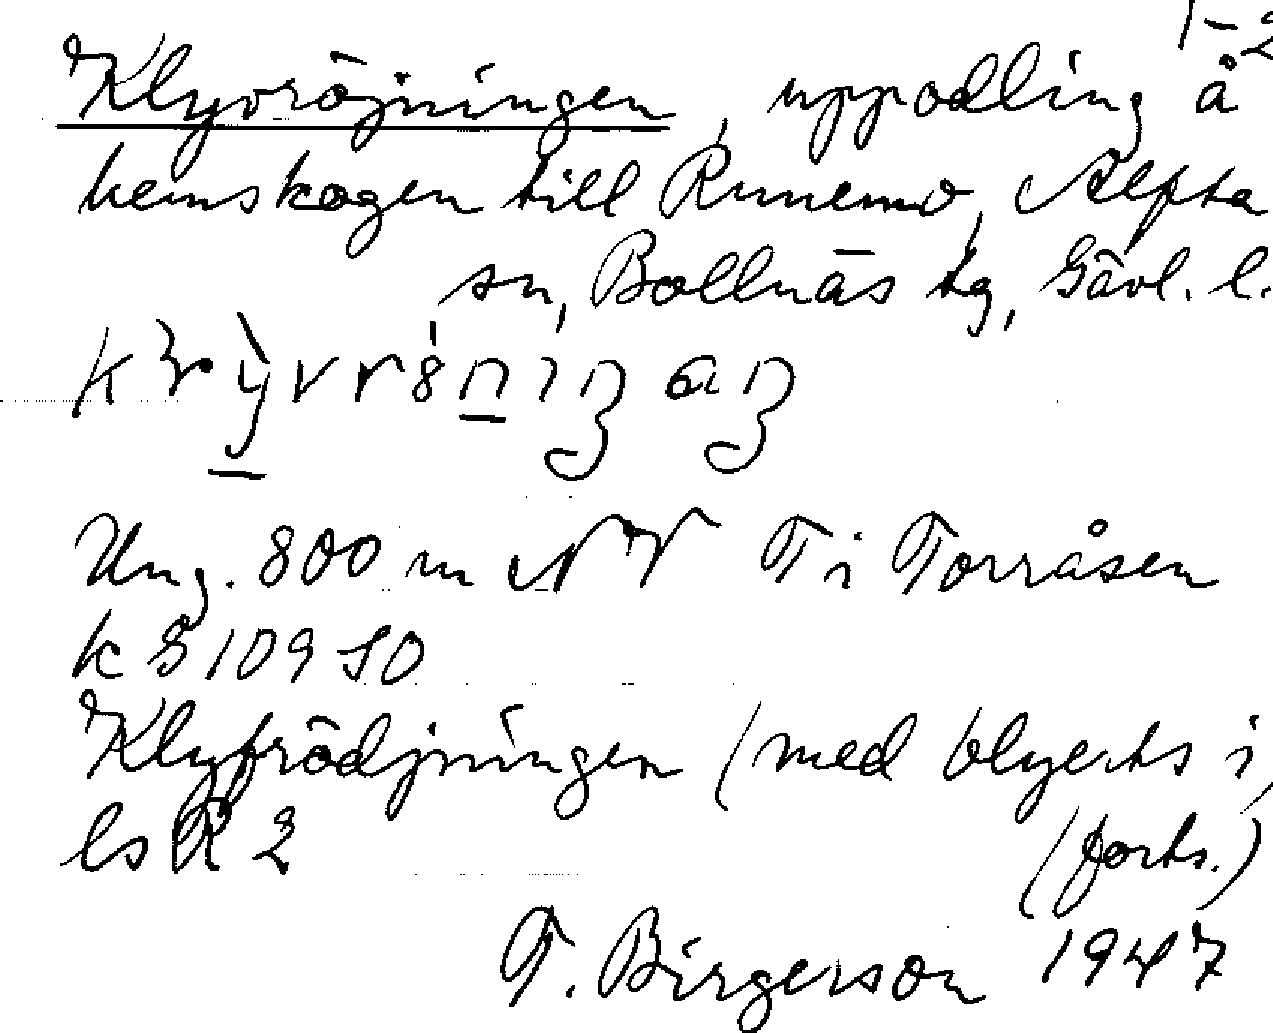 1-2
Klyvröjningen, uppodling å
hemskogen till Runemo, Alfta
sn, Bollnäs tg, Gävl. l.
Ung. 800 m NV T i Torråsen
k S 109 SO
Klyfrödjningen (med blyerts i
lsR 2 (forts.)
T. Birgerson 1947